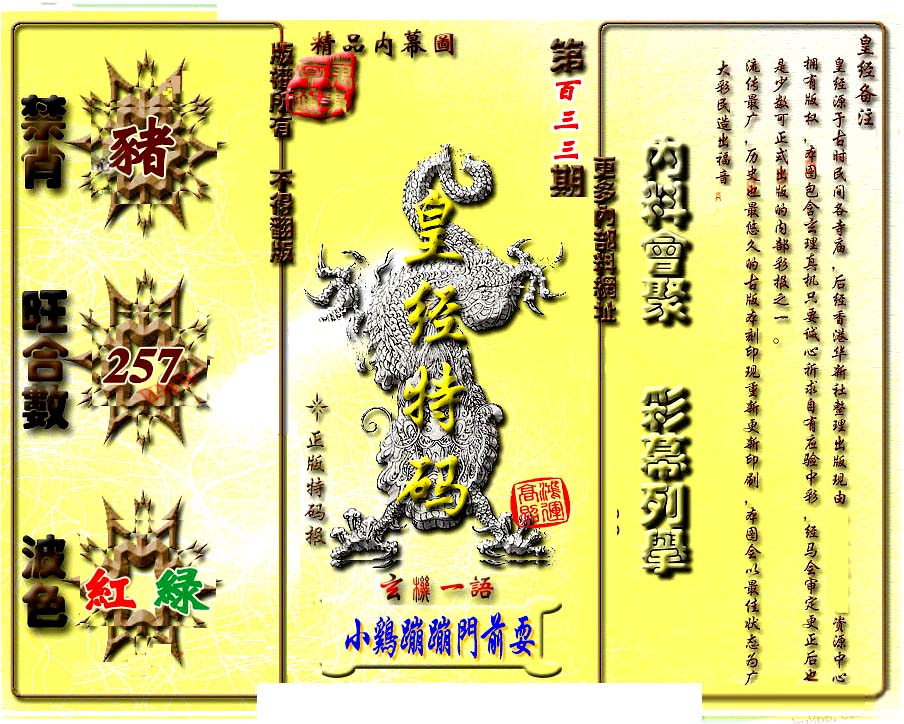 精品内幕圖
第百三三期
版權所有 不得翻版
更多内部料網址
禁肖
豬
旺合數
257
波色
紅 綠
皇经特码
正版特码报
鴻運高照
玄機一語
小鷄蹦蹦門前耍
内料會聚 彩幕列舉
皇经备注
皇经源于古时民间各寺庙,后经香港华新社整理出版现由 资源中心
拥有版权,本图包含玄理真机只要诚心祈求自有应验中彩,经马会审定更正后也
是少数可正式出版的内部彩报之一。
流传最广,历史也最悠久的古版本刻印现重新更新印刷,本图会以最佳状态为广
大彩民造出福音